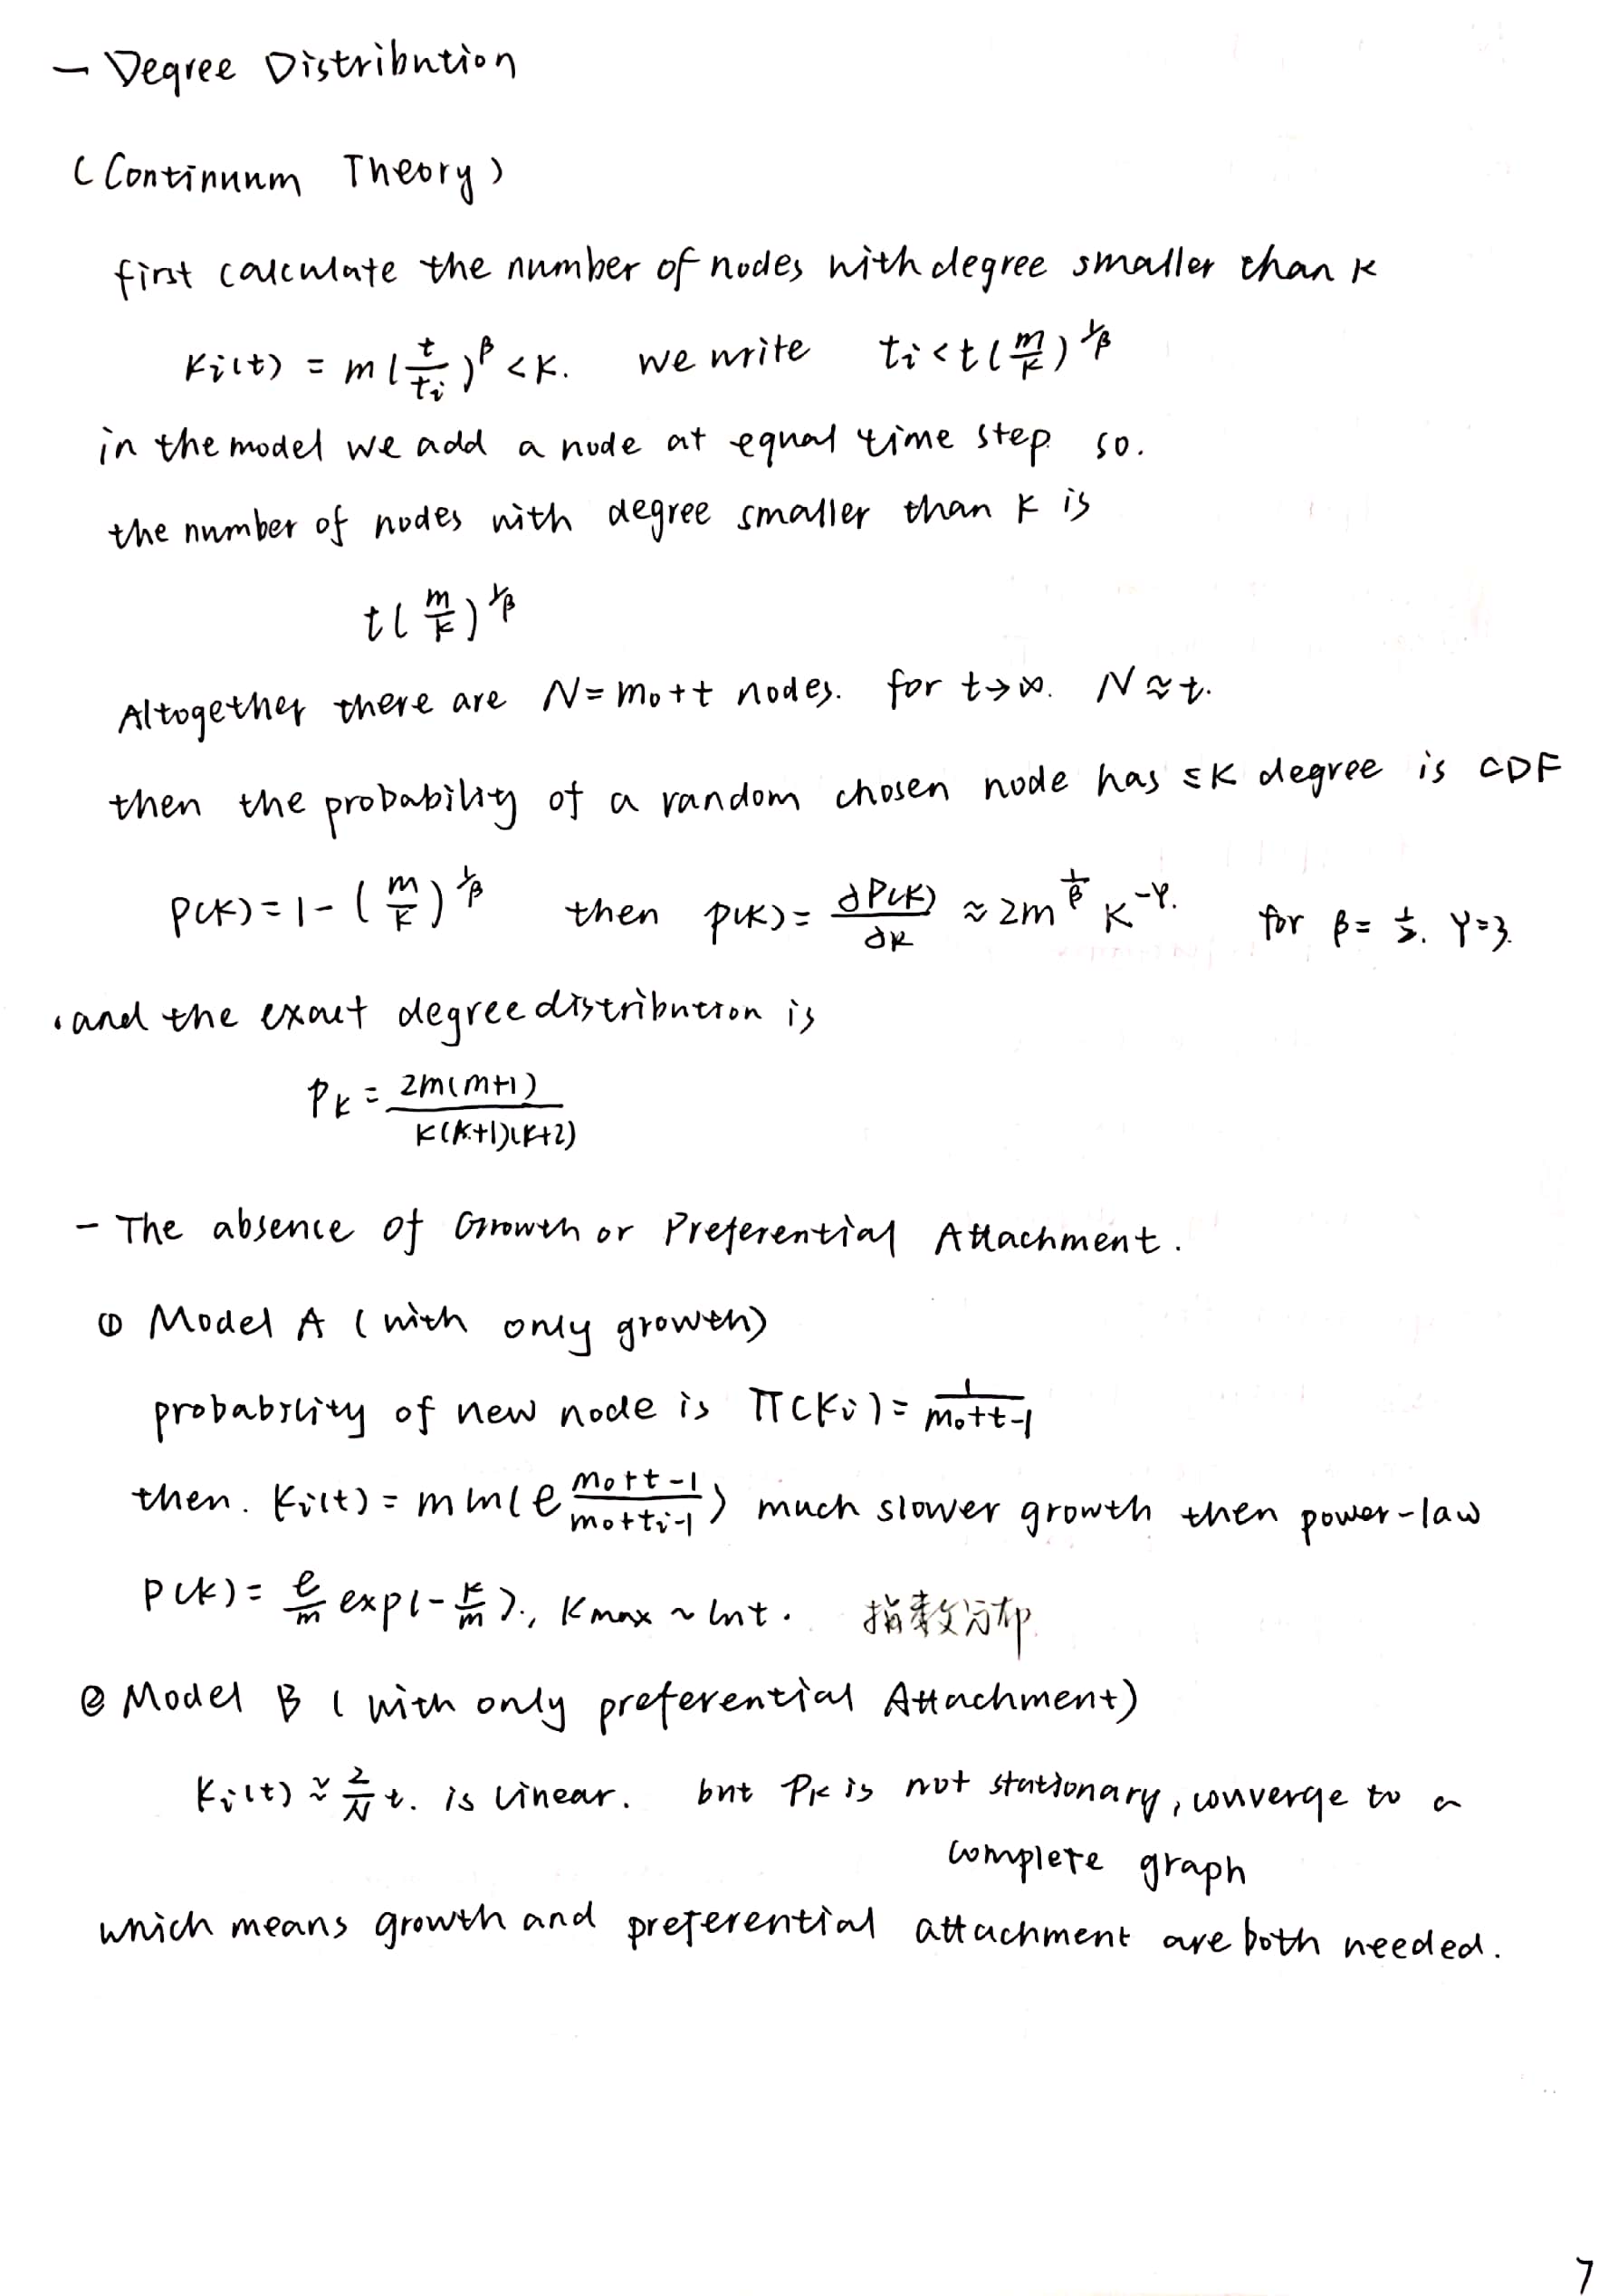 - Degree Distribution
(Continuum Theory)
first calculate the number of nodes with degree smaller than k
Ki(t) = m(t/ti)^β < K. we write ti < t(m/k)^1/β
in the model we add a node at equal time step so.
the number of nodes with degree smaller than k is
t(m/k)^1/β
Altogether there are N = m₀+t nodes. for t→∞. N≈t.
then the probability of a random chosen node has ≤K degree is CDF
P(k) = 1-(m/k)^1/β then p(k) = ∂P(k)/∂k ≈ 2m^1/β K^-γ. for β = 1/2. γ=3.
· and the exact degree distribution is
Pk = 2m(m+1)/k(k+1)(k+2)
- The absence of Growth or Preferential Attachment.
① Model A (with only growth)
probability of new node is Π(Ki) = 1/m₀+t-1
then. Ki(t) = m ln(e m₀+t-1/m₀+ti-1) much slower growth then power-law
P(k) = e/m exp(-k/m)., Kmax ~ lnt. 指数分布.
② Model B (with only preferential Attachment)
Ki(t) ≈ 2/N t. is linear. but Pk is not stationary, converge to a
complete graph
which means growth and preferential attachment are both needed.
7